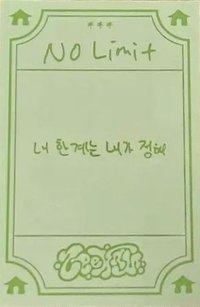 NO Limit
내 한계는 내가 정해